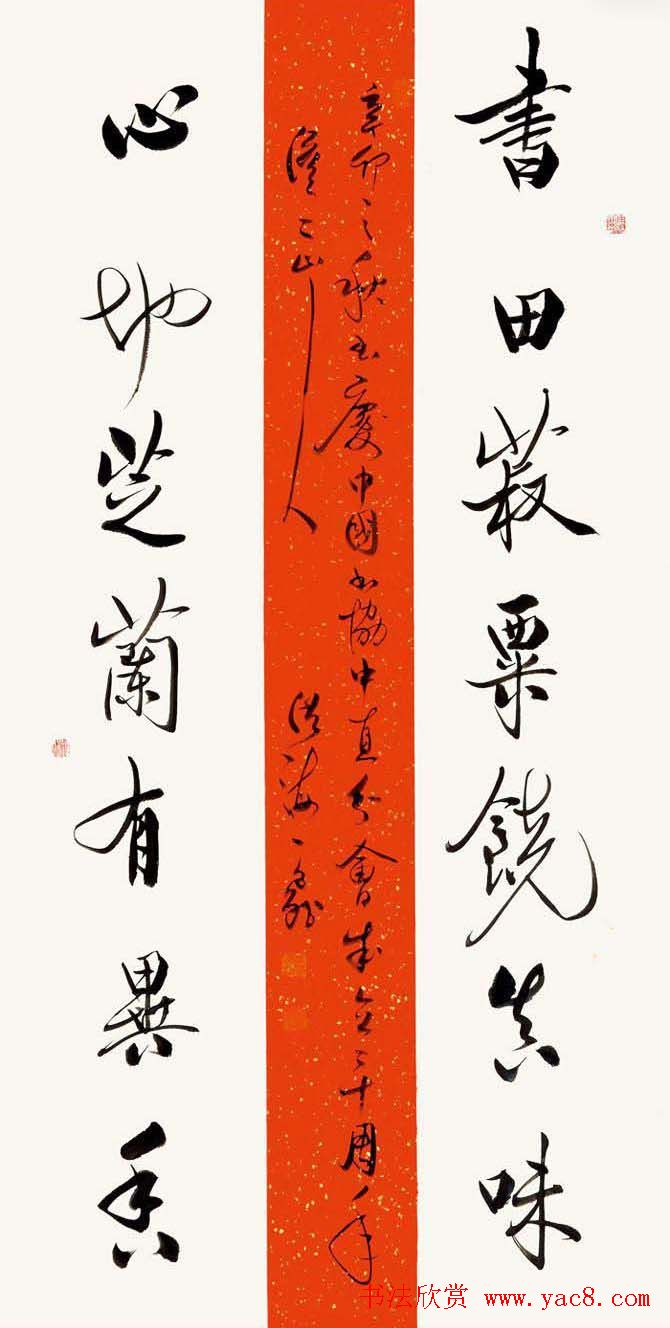 書田菽粟饒真味
辛卯之秋书慶中國书協中直分會成立二十周年
山人
心地芝蘭有異香
书法欣赏 www.yac8.com